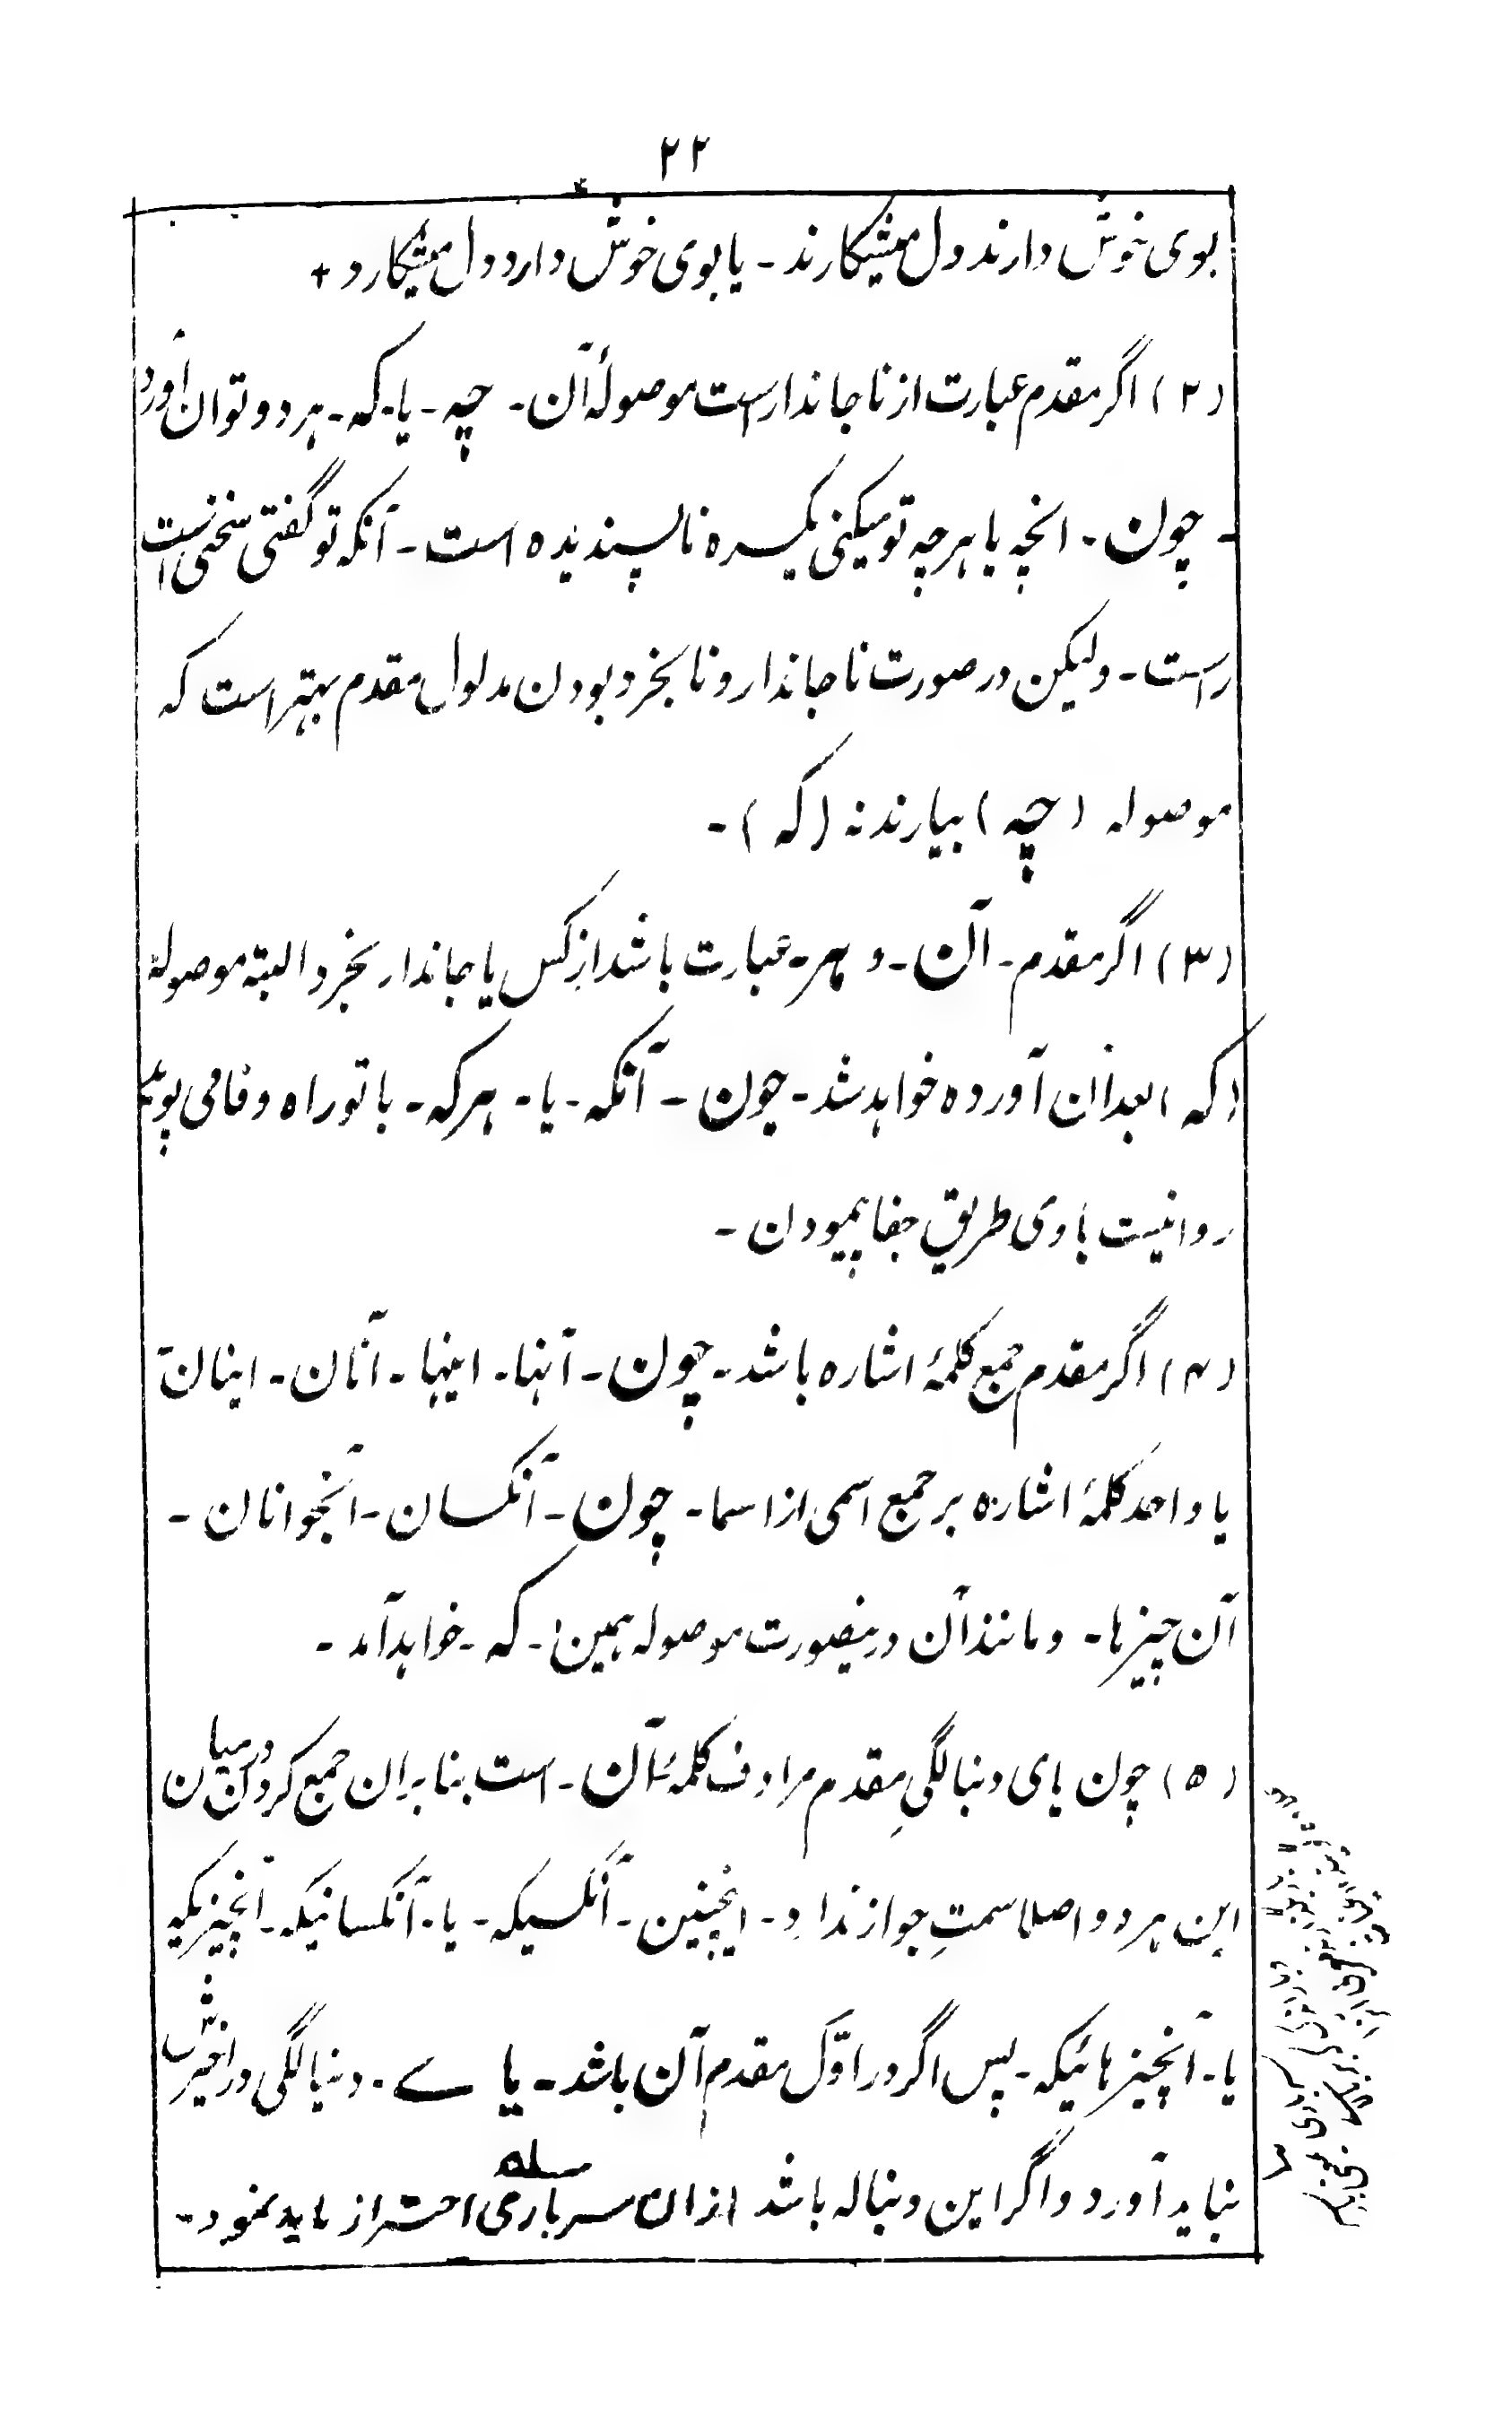 ۲۲
بوی خوش دارند دل میشکارند - یا بوی خوش دارد دل میشکارد +
(۲) اگر مقدم عبارت از ناجاندار است موصولهٔ آن - چه - یا - که - هر دو توان آورد
- چون - انچه یا هرچه تو میکنی یکسره ناپسندیده است - آنکه تو گفتی سخنی است
راست - ولیکن در صورت ناجاندار و نابخرد بودن مدلول مقدم بهتر است که
موصوله (چه) بیارند نه (که) -
(۳) اگر مقدم - آن - و هر - عبارت باشد از کس یا جاندار بخرد البته موصولهٔ
(که) بعد ازان آورده خواهد شد - چون - آنکه - یا - هرکه - با تو راه وفا می پوید
روانیست با وی طریق جفا پیمودن -
(۴) اگر مقدم جمع کلمهٔ اشاره باشد - چون - آنها - اینها - آنان - اینان -
یا واحد کلمهٔ اشاره بر جمع اسمی از اسما - چون - آنکسان - آنجوانان -
آن چیزها - و مانند آن درینصورت موصوله همین - که - خواهد آمد -
(۵) چون یای دنبالگیِ مقدم مرادف کلمهٔ آن - است بنا بران جمع کردن درمیان
این هر دو اصلا سمتِ جواز ندارد - اینچنین - آنکسیکه - یا - آنکسانیکه - آنچیزیکه
یا - آنچیزهائیکه - پس اگر در اوّل مقدم آن باشد - یا ے - دنبالگی در اخیرش
نباید آورد و اگر این دنباله باشد ازان سرباری احتراز باید نمود -